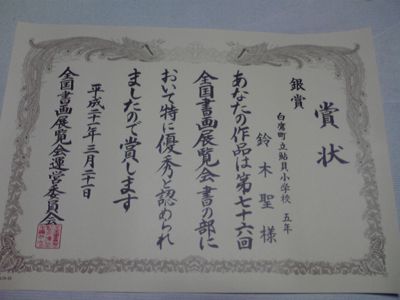 賞状
銀賞
白鷹町立鮎貝小学校 五年
鈴木聖様
あなたの作品は第七十六回
全国書画展覧会書の部に
おいて特に優秀と認められ
ましたので賞します
平成二十一年三月二十一日
全国書画展覧会運営委員会